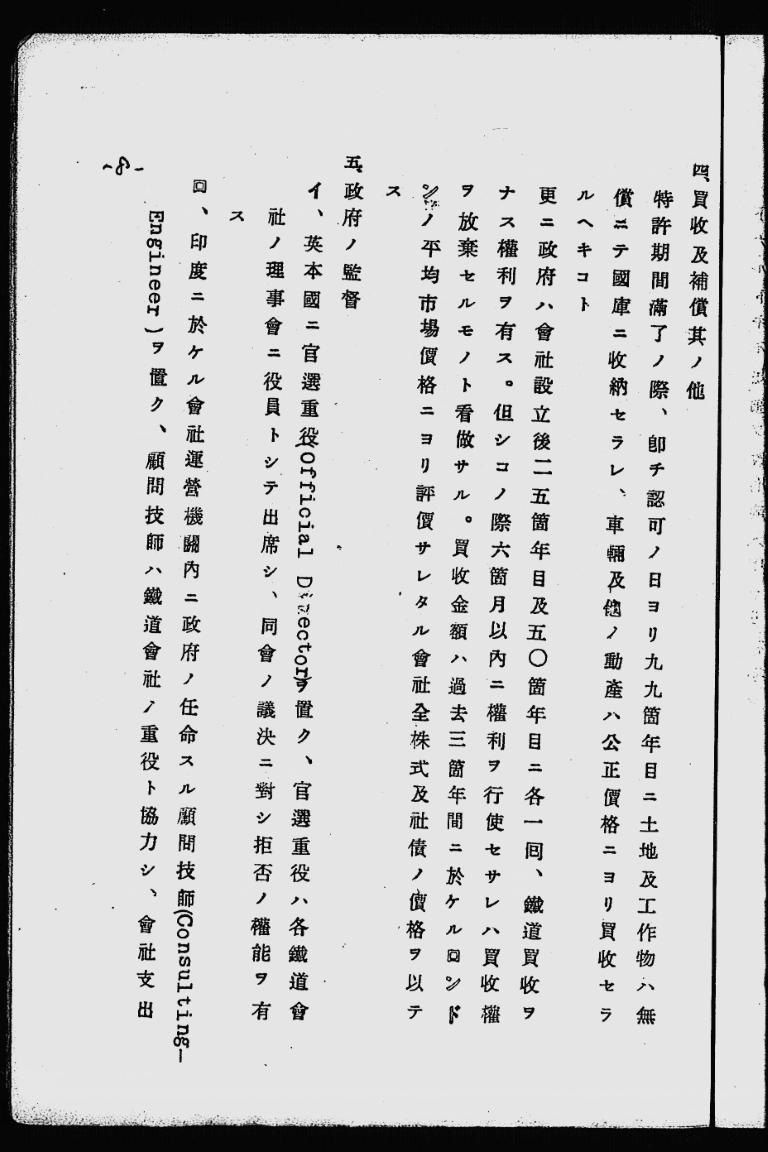 四、買收及補償其ノ他
特許期間滿了ノ際、卽チ認可ノ日ヨリ九九箇年目ニ土地及工作物ハ無
償ニテ國庫ニ收納セラレ、車輛及他ノ動產ハ公正價格ニヨリ買收セラ
ルヘキコト
更ニ政府ハ會社設立後二五箇年目及五〇箇年目ニ各一回、鐵道買收ヲ
ナス權利ヲ有ス。但シコノ際六箇月以內ニ權利ヲ行使セサレハ買收權
ヲ放棄セルモノト看做サル。買收金額ハ過去三箇年間ニ於ケルロンド
ンノ平均市場價格ニヨリ評價サレタル會社全株式及社債ノ價格ヲ以テ
ス
五、政府ノ監督
イ、英本國ニ官選重役(Official Director)ヲ置ク、官選重役ハ各鐵道會
社ノ理事會ニ役員トシテ出席シ、同會ノ議決ニ對シ拒否ノ權能ヲ有
ス
ロ、印度ニ於ケル會社運營機關內ニ政府ノ任命スル顧問技師(Consulting-
Engineer)ヲ置ク、顧問技師ハ鐵道會社ノ重役ト協力シ、會社支出
-8-